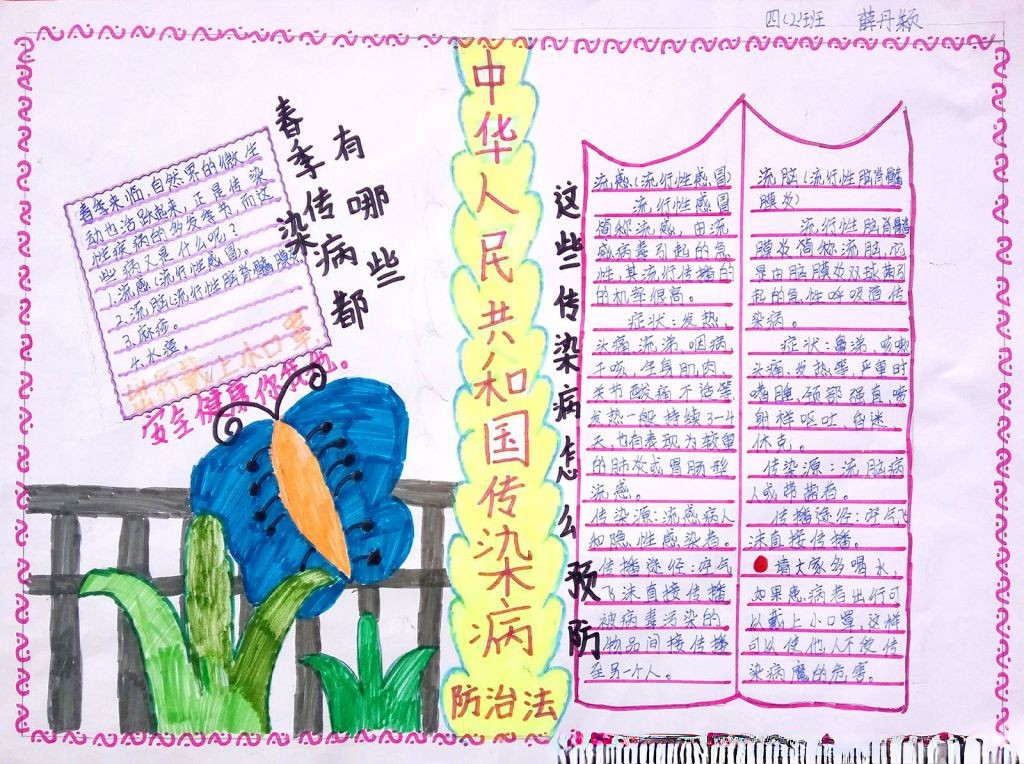 四(2)班 薛丹颖
中华人民共和国传染病
防治法
春季传染病都
有哪些
春季来临,自然界的微生
动也活跃起来,正是传染
性疾病的多发季节,而这
些病又是什么呢?
1.流感(流行性感冒)。
2.流脑(流行性脑脊髓膜炎)
3.麻疹。
4.水痘。
出行戴上小口罩,
安全健康你我他。
这些传染病怎么预防
流感(流行性感冒)
流行性感冒
简称流感,由流
感病毒引起的急
性,其流行传播的
的机率很高。
症状:发热,
头痛,流涕,咽痛,
干咳,全身肌肉、
关节酸痛不适等,
发热一般持续3—4
天,也有表现为较重
的肺炎或胃肠型
流感。
传染源:流感病人
和隐性感染者。
传播途径:呼气
飞沫直接传播
被病毒污染的
物品间接传播
至另一个人。
流脑(流行性脑脊髓
膜炎)
流行性脑脊髓
膜炎简称流脑,它
是由脑膜炎双球菌引
起的急性呼吸道传
染病。
症状:鼻涕、咳嗽
头痛、发热等,严重时
嗜睡、颈部强直、喷
射样呕吐、昏迷、
休克。
传染源:流脑病
人或带菌者。
传播途径:呼气飞
沫直接传播。
请大家多喝水,
如果患病者出行可
以戴上小口罩,这样
可以使他人不受传
染病魔的危害。